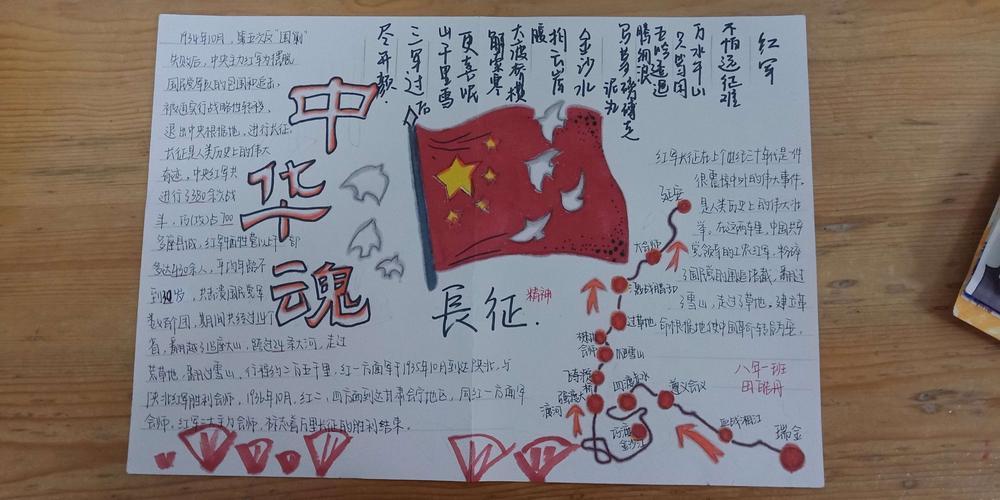 1934年10月，第五次反"围剿"
失败后，中央主力红军为摆脱
国民党军队的包围和追击，
被迫实行战略性转移，
退出中央根据地，进行长征，
长征是人类历史上的伟大
奇迹，中央红军共
进行了380余次战
斗，攻占700
多座县城，红军牺牲营以上干部
多达430余人，平均年龄不
到30岁，共击溃国民党军
数百个团，期间共经过14个
省，翻越18座大山，跨过24条大河，走过
荒草地，翻过雪山，行程约二万五千里，红一方面军于1935年10月到达陕北，与
陕北红军胜利会师，1936年10月，红二、四方面到达甘肃会宁地区，同红一方面军
会师，红军三大主力会师，标志着万里长征的胜利结束。
中
华
魂
红军
不怕远征难
万水千山
只等闲
五岭逶迤
腾细浪
乌蒙磅礴走
泥丸
金沙水
拍云崖
暖
大渡桥横
铁索寒
更喜岷
山千里雪
三军过后
尽开颜
長征.
精神
红军长征在上个世纪三十年代是一件
很震惊中外的伟大事件。
是人类历史上的伟大壮
举，在这两年里，中国共产
党领导的工农红军，粉碎
了国民党的围追堵截，翻过
了雪山，走过了草地，建立革
命根据地使中国革命转危为安。
延安
大会师
激战腊子口
过草地
会师
爬雪山
飞夺泸定桥
强渡大
渡河
四渡赤水
巧渡
金沙江
遵义会议
血战湘江
瑞金
八年一班